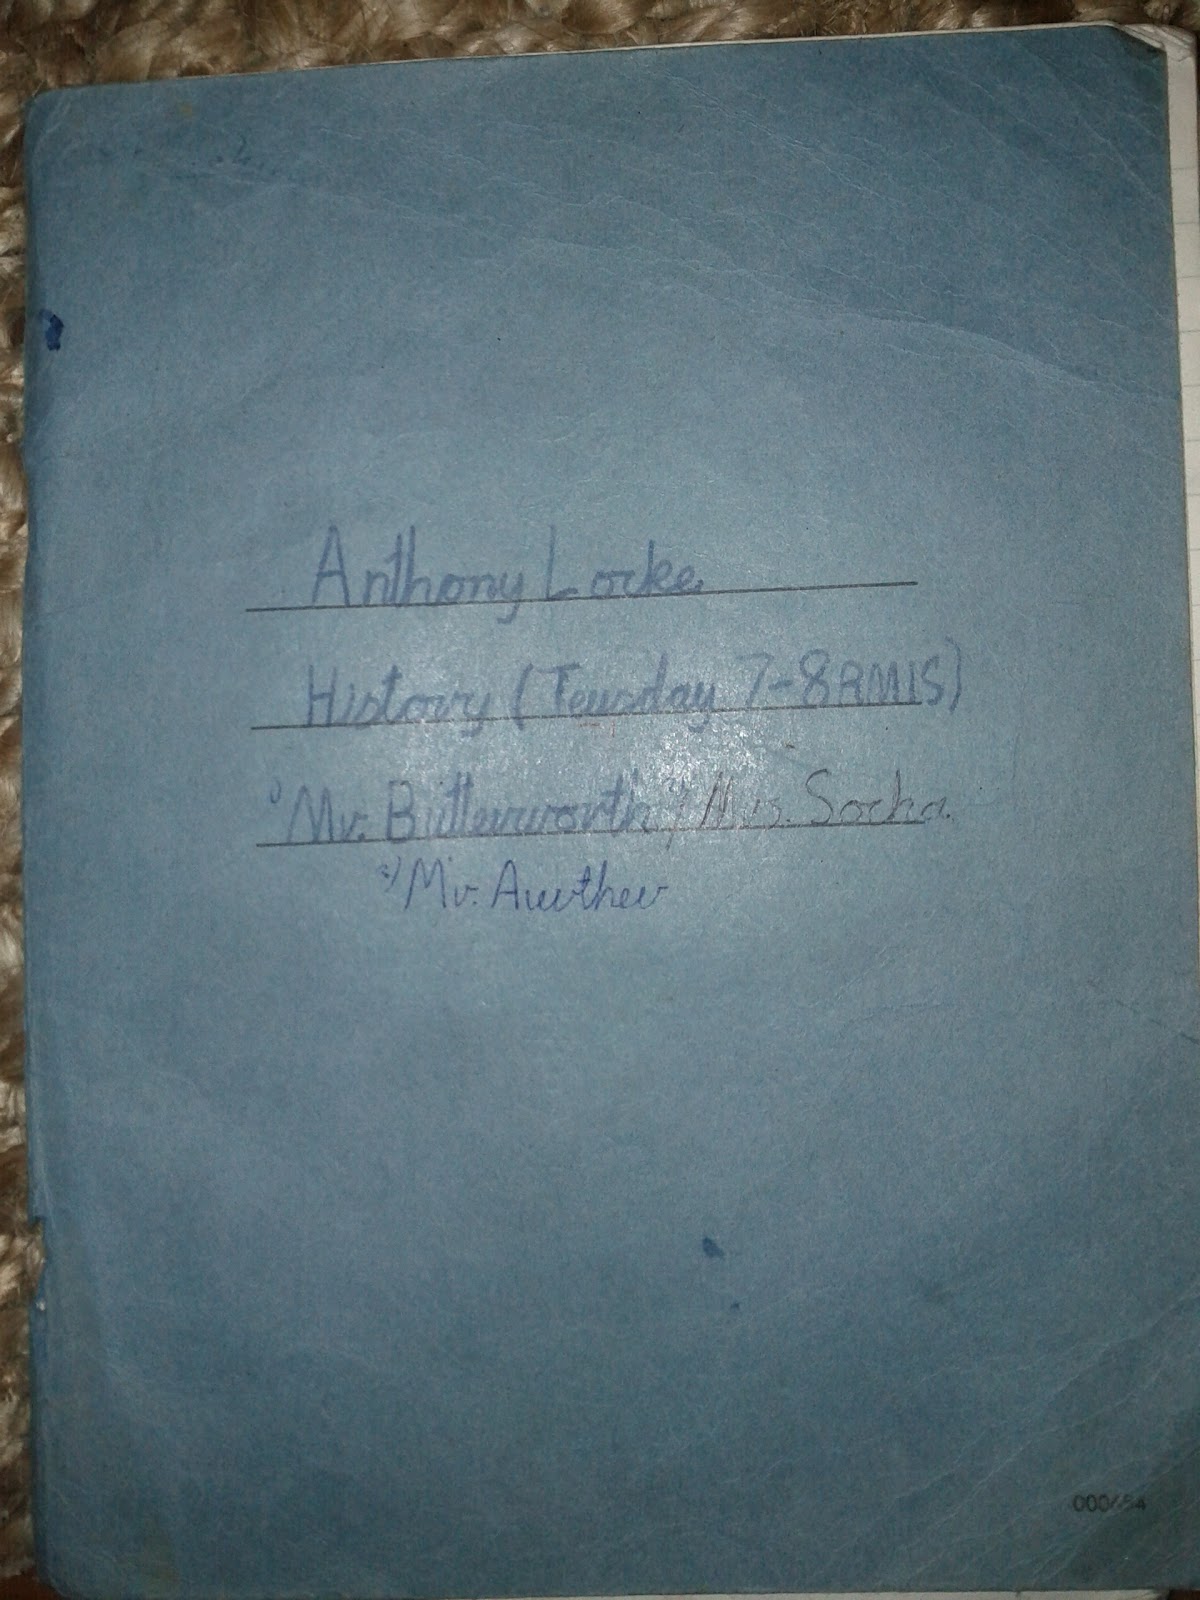 Anthony Locke
History (Teusday 7-8 RM15)
1) Mr. Butterworth 2) Mrs. Socha
3) Mr. Awther